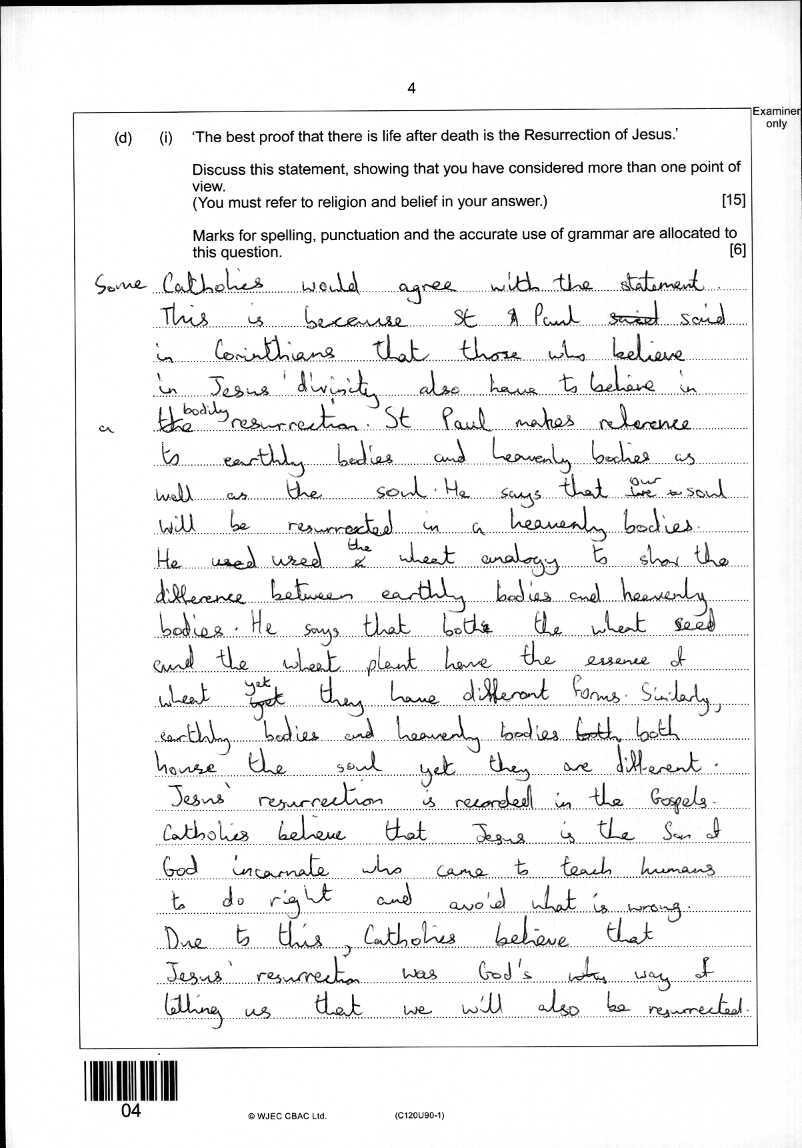 4
Examiner
only
(d) (i) 'The best proof that there is life after death is the Resurrection of Jesus.'
Discuss this statement, showing that you have considered more than one point of
view.
(You must refer to religion and belief in your answer.) [15]
Marks for spelling, punctuation and the accurate use of grammar are allocated to
this question. [6]
Some Catholics would agree with the statement.
This is because St Paul said
in Corinthians that those who believe
in Jesus' divinity also have to believe in
a bodily resurrection. St Paul makes reference
to earthly bodies and heavenly bodies as
well as the soul. He says that our soul
will be resurrected in a heavenly bodies.
He used the wheat analogy to show the
difference between earthly bodies and heavenly
bodies. He says that both the wheat seed
and the wheat plant have the essence of
wheat yet they have different forms. Similarly,
earthly bodies and heavenly bodies both
house the soul yet they are different.
Jesus' resurrection is recorded in the Gospels.
Catholics believe that Jesus is the Son of
God incarnate who came to teach humans
to do right and avoid what is wrong.
Due to this, Catholics believe that
Jesus' resurrection was God's way of
letting us that we will also be resurrected.
04
© WJEC CBAC Ltd.
(C120U90-1)